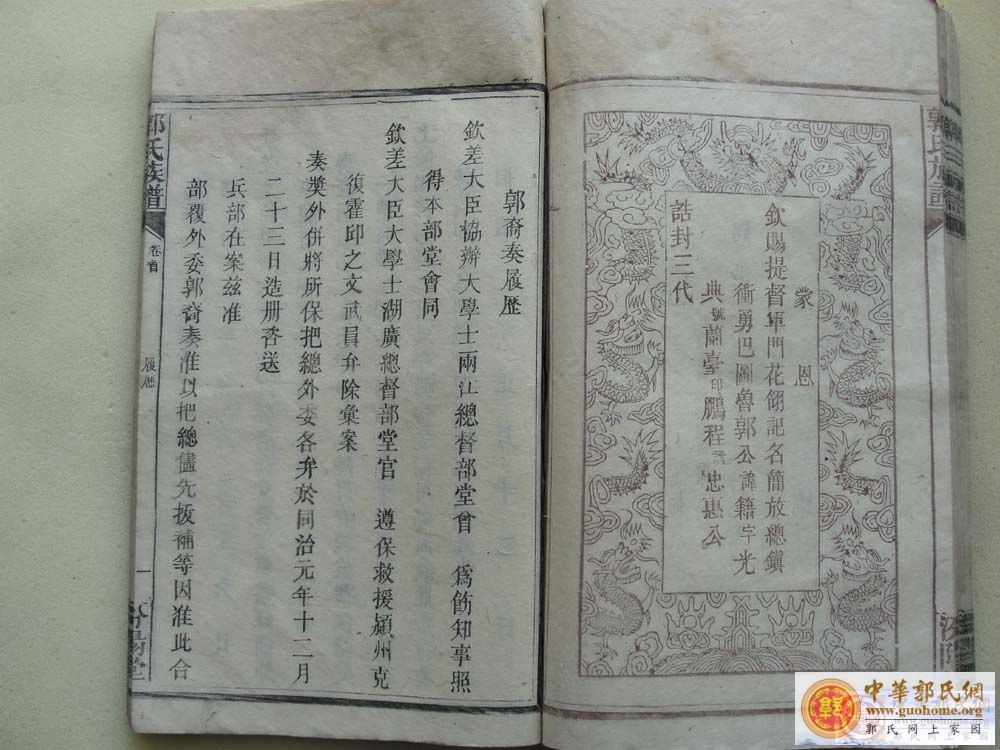 郭氏族譜
蒙恩
欽賜提督軍門花翎記名簡放總鎮
衝勇巴圖魯郭公諱籍字光
典號蘭臺印鵬程諡忠惠公
誥封三代
郭裔奏履歷
欽差大臣協辦大學士兩江總督部堂曾 為飭知事照
得本部堂會同
欽差大臣大學士湖廣總督部堂官 遵保救援潁州克
復霍邱之文武員弁除彙案
奏獎外併將所保把總外委各弁於同治元年十二月
二十三日造册咨送
兵部在案兹准
部覆外委郭裔奏准以把總儘先拔補等因准此合
郭氏族譜
卷首
履歷
一
汾陽堂
中華郭氏網
www.guohome.org
郭氏网上家园